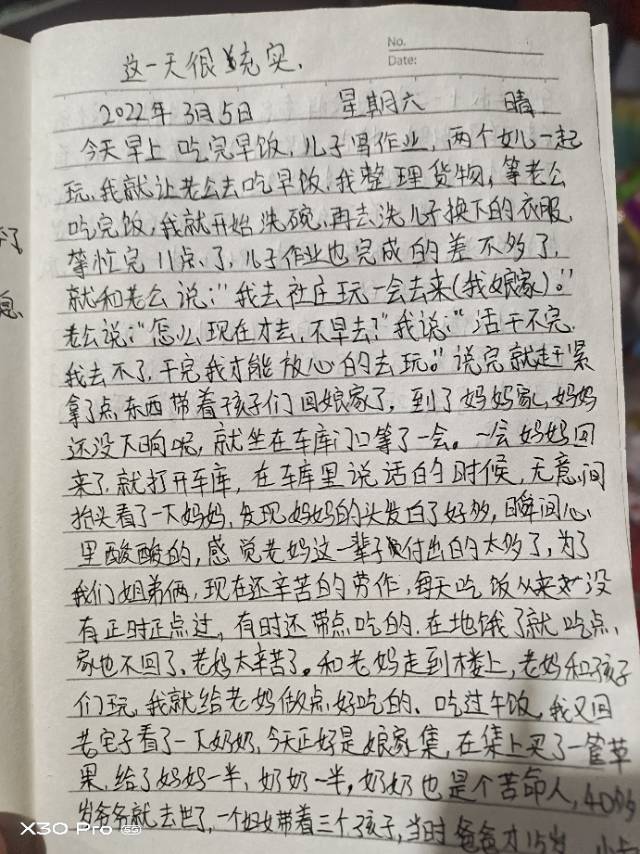 No.
这一天很充实.
Date:
2022年3月5日 星期六 晴
今天早上吃完早饭,儿子写作业,两个女儿一起
玩,我就让老公去吃早饭,我整理货物,等老公
吃完饭,我就开始洗碗,再去洗儿子换下的衣服,
等忙完11点了,儿子作业也完成的差不多了,
就和老公说:"我去社庄玩一会去来(我娘家)。"
老公说:"怎么现在才去,不早去?"我说:"活干不完,
我去不了,干完我才能放心的去玩。"说完就赶紧
拿了点东西带着孩子们回娘家了,到了妈妈家,妈妈
还没下晌呢,就坐在车库门口等了一会。一会妈妈回
来了,就打开车库,在车库里说话的时候,无意间
抬头看了一下妈妈,发现妈妈的头发白了好多,瞬间心
里酸酸的,感觉老妈这一辈子付出的太多了,为了
我们姐弟俩,现在还辛苦的劳作,每天吃饭从来没
有正时正点过,有时还带点吃的,在地饿了就吃点,
家也不回了,老妈太辛苦了。和老妈走到楼上,老妈和孩子
们玩,我就给老妈做点好吃的、吃过午饭,我又回
老宅子看了一下奶奶,今天正好是娘家集,在集上买了一筐草
果,给了妈妈一半,奶奶一半,奶奶也是个苦命人,40多
岁爷爷就去世了,一个妇女带着三个孩子,当时爸爸才15岁
X30 Pro 5G